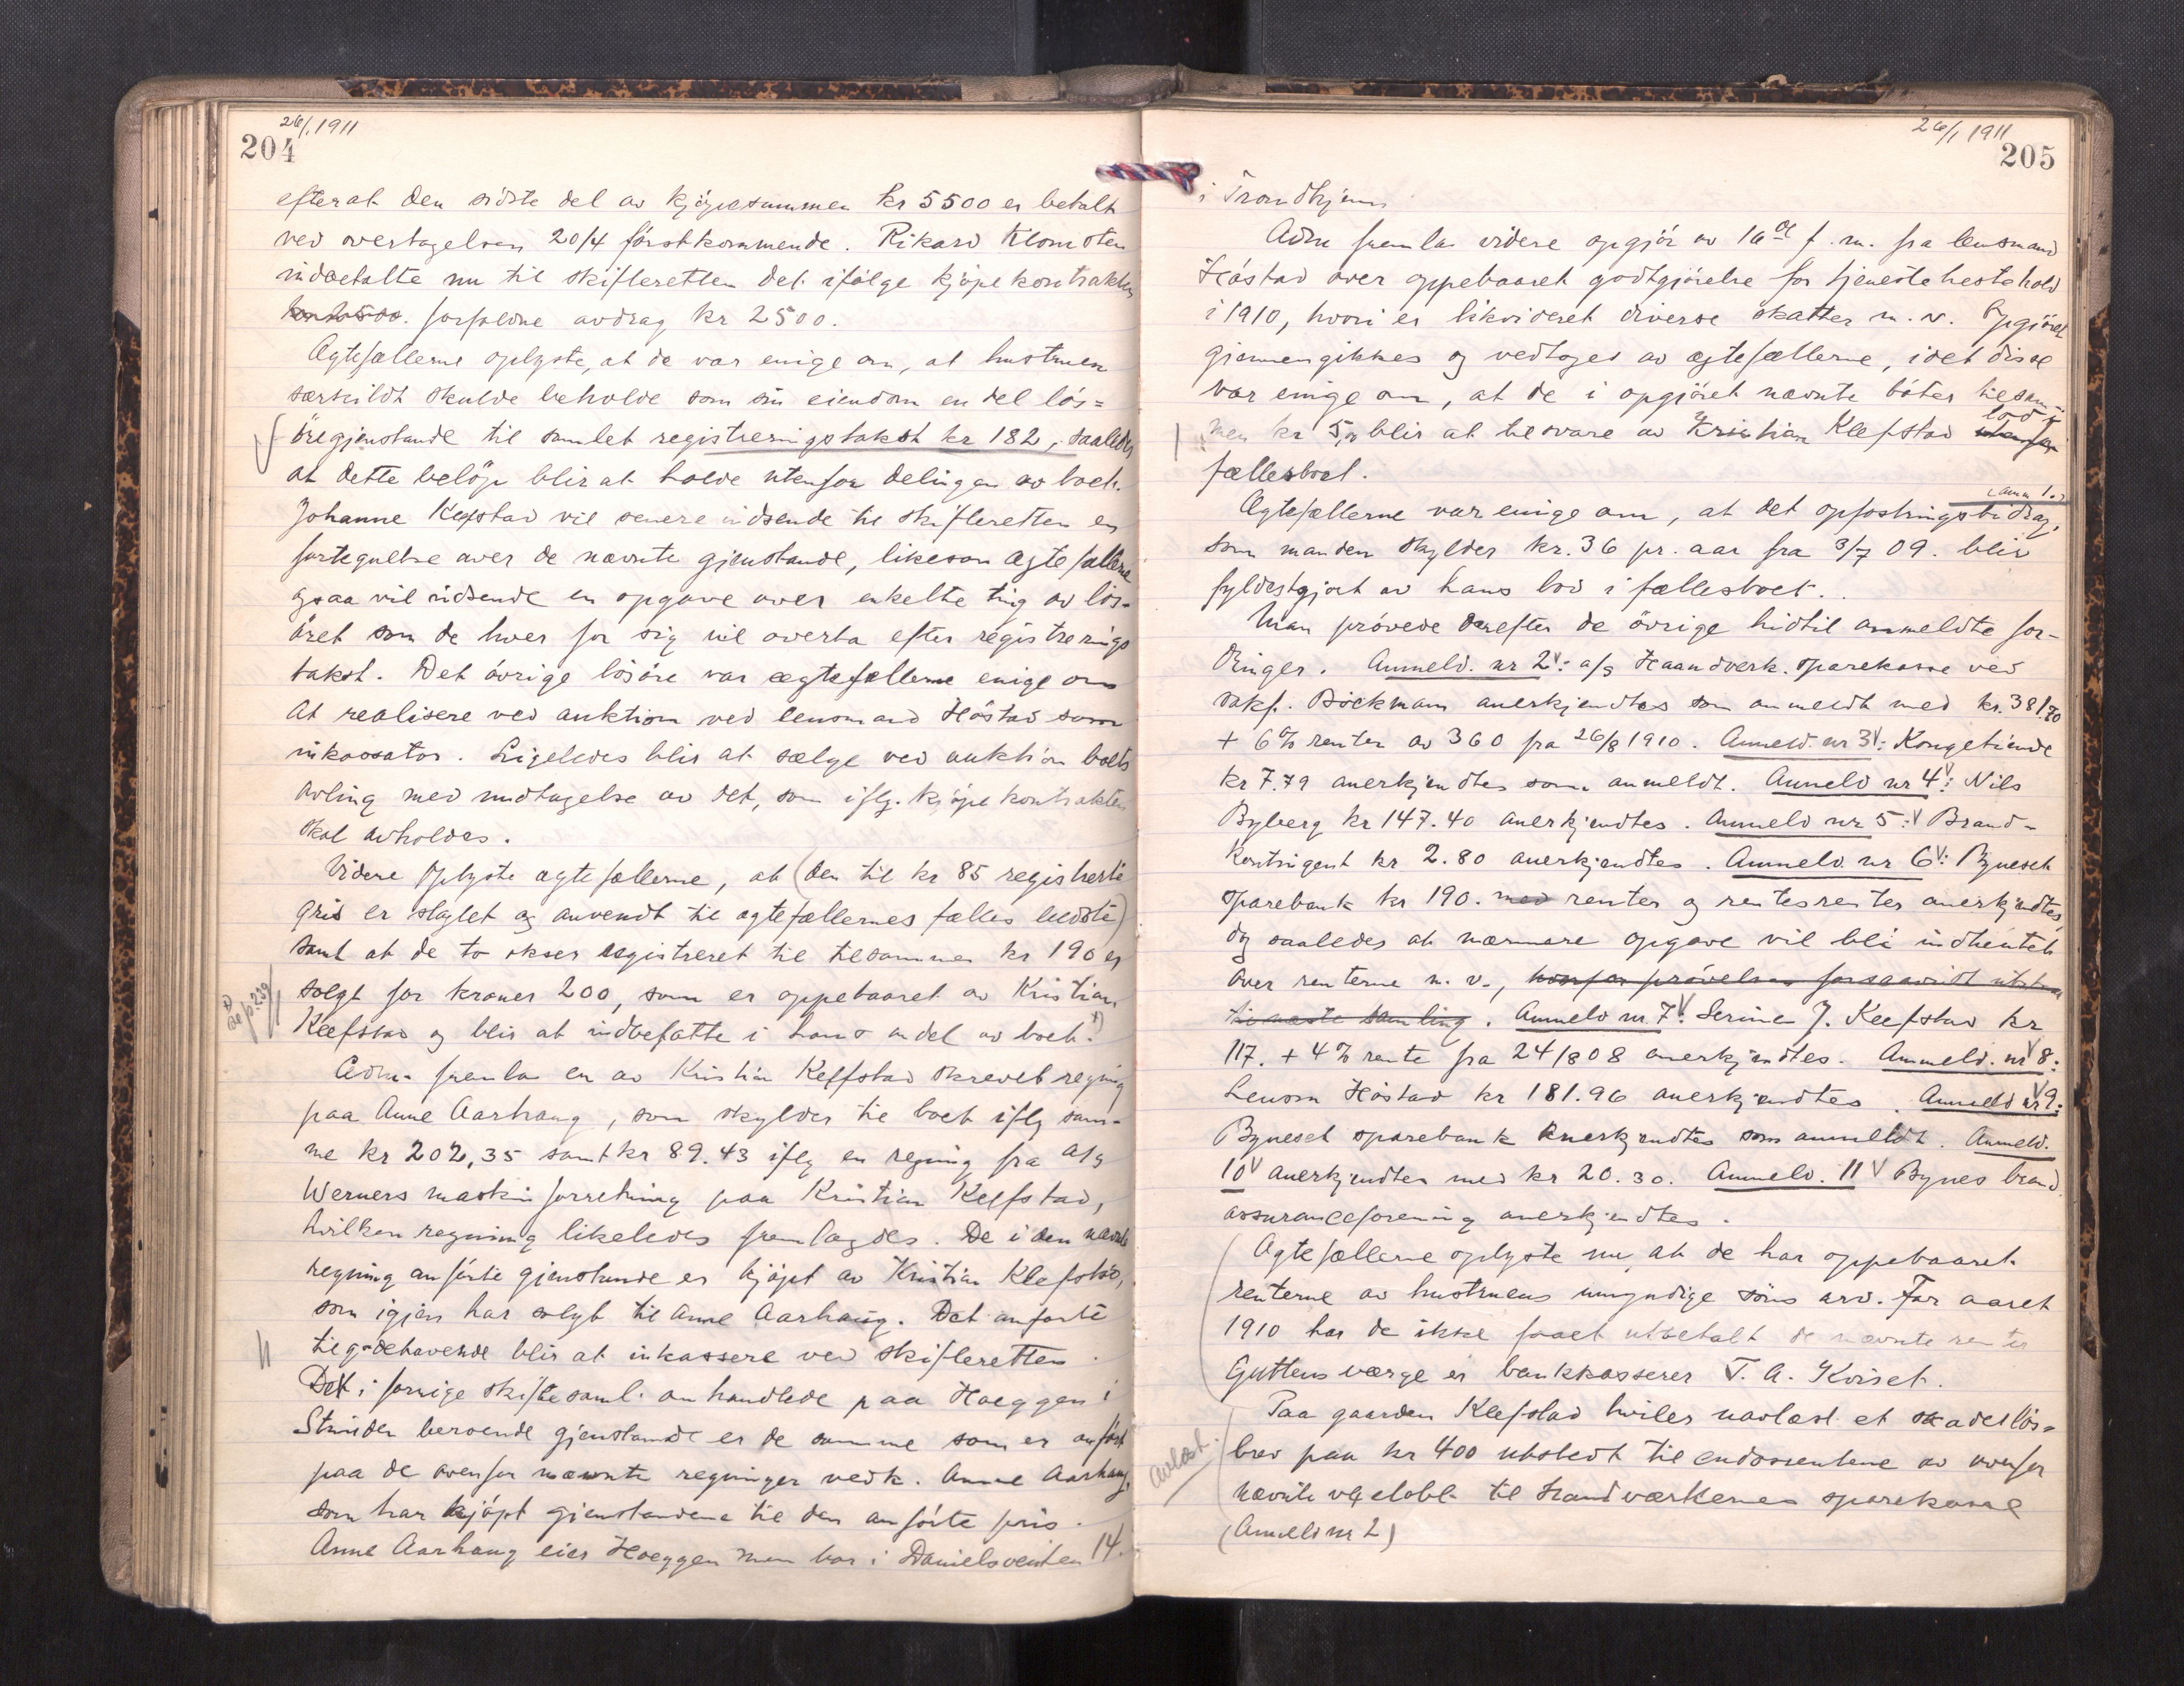 26/1 1911
204
efterat den sidste del av kjøpesummen kr 5500 er betalt
ved overtagelsen 20/4 førstkommende. Rikard Klomsten
indbetalte nu til skifteretten det ifølge kjøpekontrakten
forfaldne avdrag kr 2500.
Ægtefællerne oplyste, at de var enige om, at hustruen
særskildt skulde beholde som sin eiendom en del løs=
øregjenstande til samlet registreringstakst kr 182, saaledes
at dette beløp blir at holde utenfor delingen av boet.
Johanne Klefstad vil senere indsende til skifteretten en
fortegnelse over de nævnte gjenstande, likesom ægtefællerne
ogsaa vil indsende en opgave over enkelte ting av løs-
øret som de hver for sig vil overta efter registrerings
takst. Det øvrige løsøre var ægtefællerne enige om
at realisere ved auktion ved lensmand Høstad som
inkassator. Ligeledes blir at sælge ved auktion boets
avling med undtagelse av det, som iflg. kjøpekontrakten
skal avholdes.
Videre oplyste ægtefællerne, at (den til kr 85 registrerte
gris er slagtet og anvendt til ægtefællernes fælles bedste)
samt at de to okser registreret til tilsammen kr 190 er
solgt for kroner 200, som er oppebaaret av Kristian
Klefstad og blir at indbefatte i hans andel av boet. x)
x) se p. 239
Adm. fremla en av Kristian Klefstad skrevet regning
paa Anne Aarhaug, som skylder til boet iflg sam-
me kr 202,35 samt kr 89.43 iflg en regning fra a/s
Werners maskinforretning paa Kristian Klefstad,
hvilken regning likeledes fremlagdes. De i den nævnte
regning anførte gjenstande er kjøpt av Kristian Klefstad,
som igjen har solgt til Anne Aarhaug. Det anførte
tilgodehavende blir at inkassere ved skifteretten.
Det i forrige skiftesaml. omhandlede paa Hoeggen i
Strinden beroende gjenstande er de samme som er anført
paa de ovenfor nævnte regninger vedk. Anne Aarhaug,
som har kjøpt gjenstandene til den anførte pris.
Anne Aarhaug eier Hoeggen men bor i Danielsveiten 14.
26/1 1911
205
i Trondhjem
Adm fremla videre opgjør av 16de f. m. fra lensmand
Høstad over oppebaaret godtgjørelse for tjenestehestehold
i 1910, hvori er likvideret diverse skatter m. v. Opgjøret
gjennemgikkes og vedtoges av ægtefællerne, idet disse
var enige om, at de i opgjøret nævnte bøter tilsam-
men kr 5,00 blir at tilsvare av Kristian Klefstad lod i
fællesboet.
(anm 1.)
Ægtefællerne var enige om, at det opfostringsbidrag,
som manden skylder kr. 36 pr. aar fra 3/7 09. blir
fyldestgjort av hans lod i fællesboet.
Man prøvede derefter de øvrige hidtil anmeldte for-
dringer. Anmeld. nr 2: a/s Haandverk. sparekasse ved
sakf. Bøckmann anerkjendtes som anmeldt med kr. 381,70
+ 6% renter av 360 fra 26/8 1910. Anmeld. nr 3: Kongetiende
kr 7.79 anerkjendtes som anmeldt. Anmeld nr 4: Nils
Byberg kr 147.40 anerkjendtes. Anmeld nr 5: Brand-
kontingent kr 2.80 anerkjendtes. Anmeld. nr 6: Bynesets
sparebank kr 190. med renter og rentesrenter anerkjendtes,
dog saaledes at nærmere opgave vil bli indhentet
over renterne m. v., hvorfor prøvelsen forsaavidt utstaar
til næste samling. Anmeld nr 7: Serine J. Klefstad kr
117. + 4% rente fra 24/8 08 anerkjendtes. Anmeld. nr 8:
Lensm Høstad kr 181.96 anerkjendtes. Anmeld nr 9:
Byneset sparebank anerkjendtes som anmeldt. Anmeld.
10 anerkjendtes med kr 20.30. Anmeld. 11 Bynes brand
assuranceforening anerkjendtes.
Ægtefællerne oplyste nu, at de har oppebaaret
renterne av hustruens umyndige søns arv. For aaret
1910 har de ikke faaet utbetalt de nævnte renter
Guttens værge er bankkasserer T. A. Kviset.
Paa gaarden Klefstad hviler uavlæst et skadesløs-
brev paa kr 400 utstedt til endossentene av ovenfor
nævnte til Haandværkernes sparekasse
(Anmeld nr 2)
avlæst.